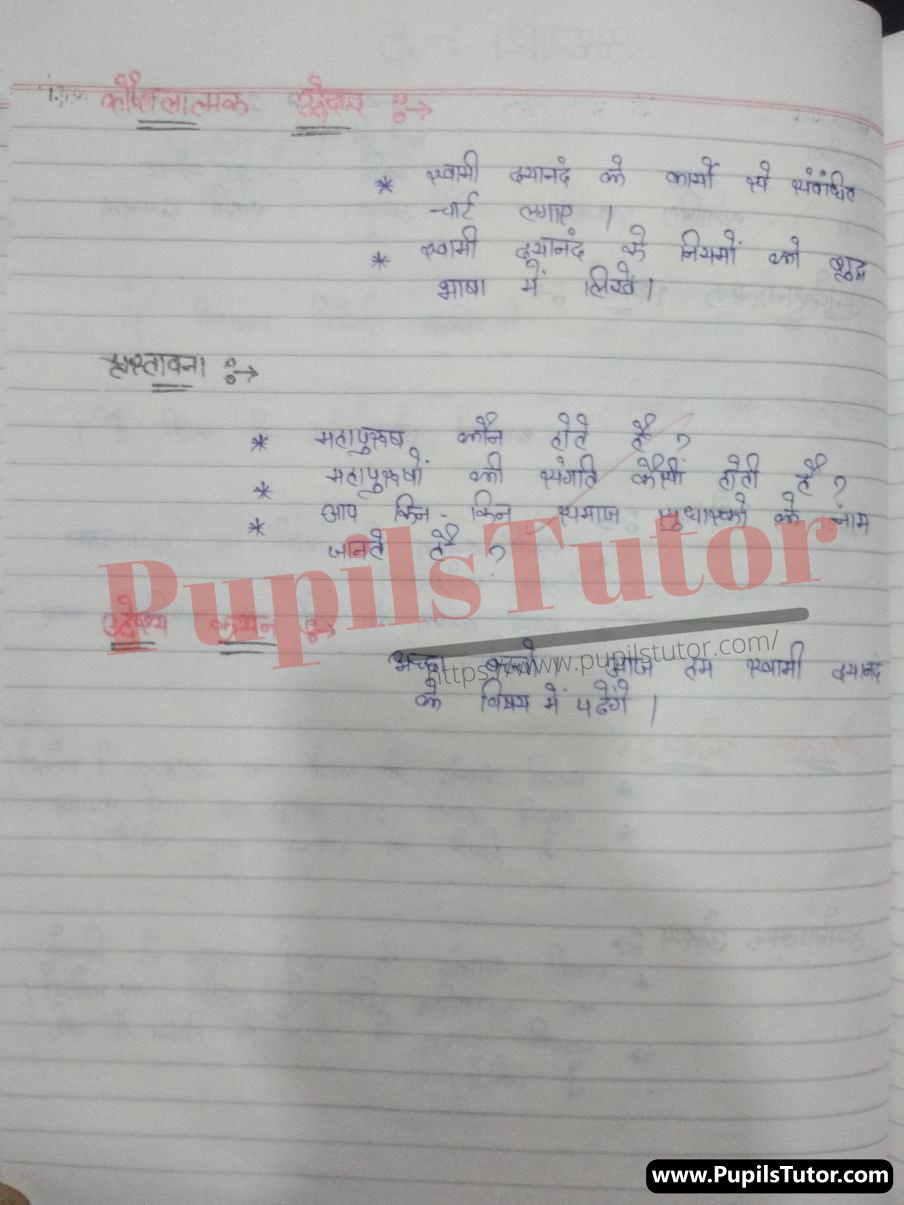 कौशलात्मक उद्देश्य :→
* स्वामी दयानंद के कार्यों से संबंधित
चार्ट लगाए ।
* स्वामी दयानंद के नियमों को शुद्ध
भाषा में लिखें।
प्रस्तावना :→
* महापुरुष कौन होते है ?
* महापुरुषों की संगति कैसी होती है ?
* आप किन-किन समाज सुधारको के नाम
जानते है ?
PupilsTutor
उद्देश्य कथन :→
https://www.pupilstutor.com/
अच्छा बच्चो आज हम स्वामी दयानंद
के विषय में पढेंगे ।
www.PupilsTutor.com